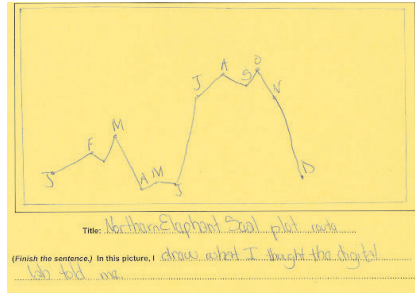 J F M A M J J A S O N D
Title: Northern Elephant Seal plot route
(Finish the sentence.) In this picture, I draw what I thought the digital
lab told me